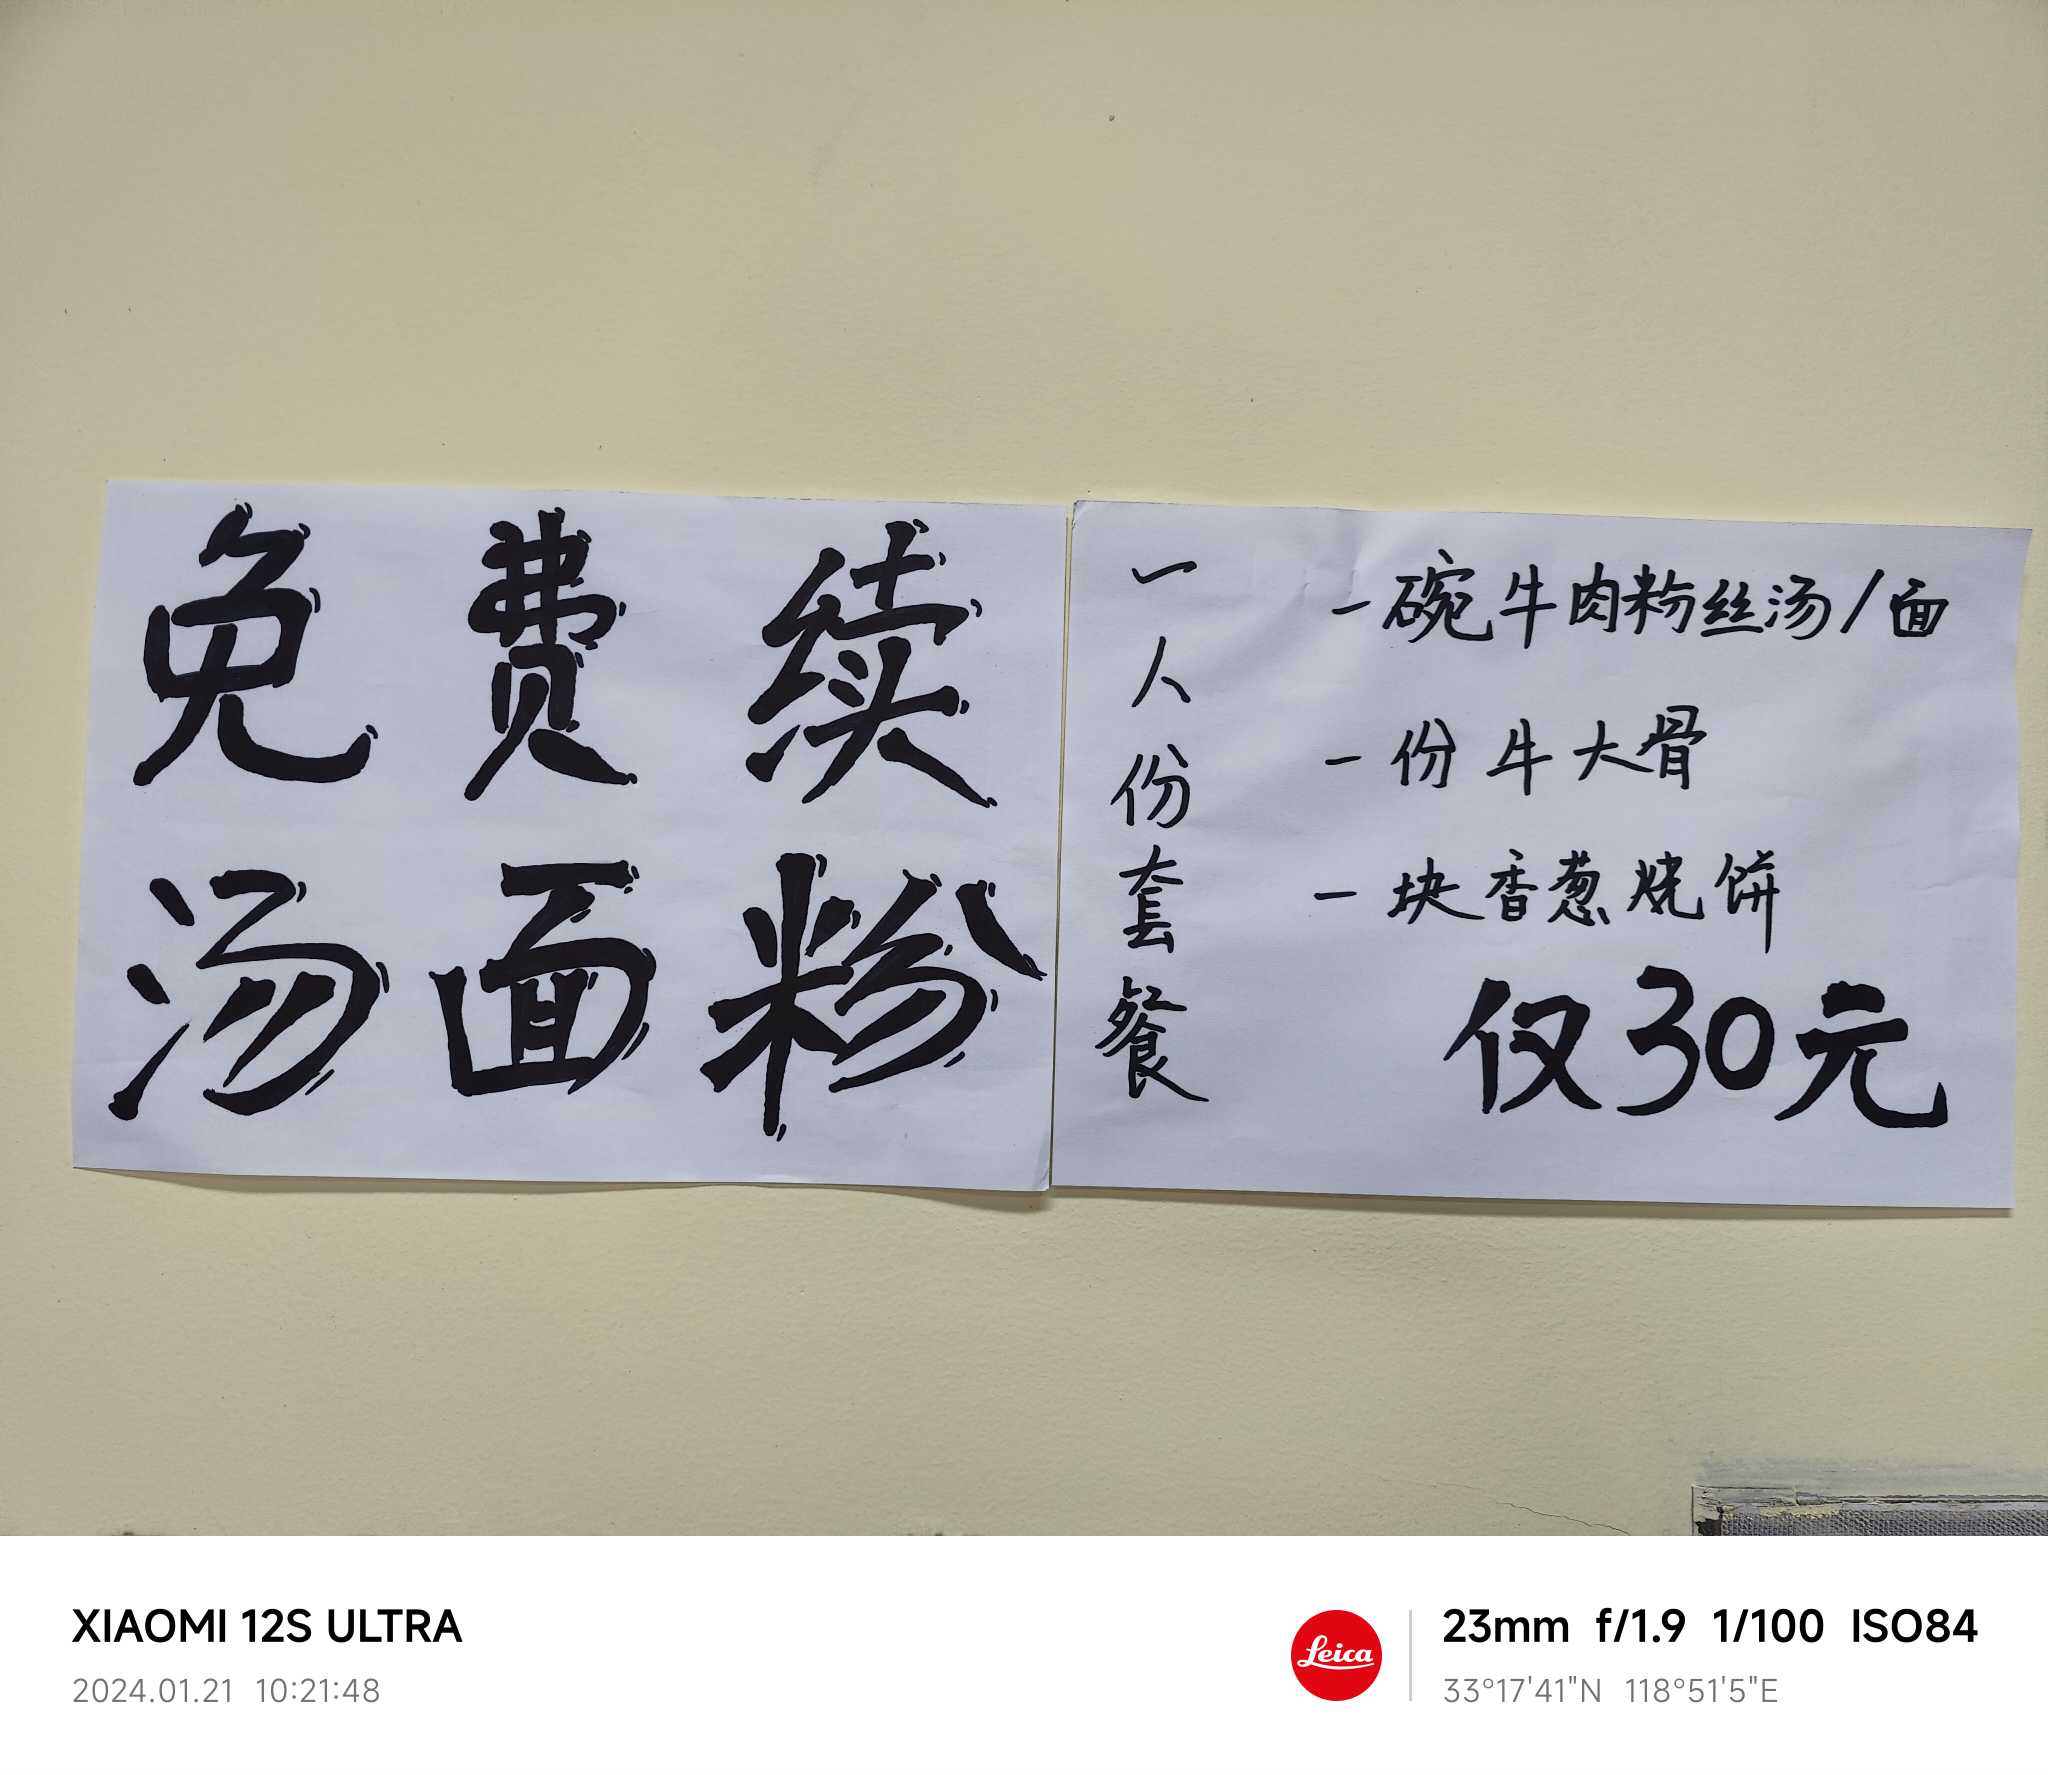 免费续
汤面粉
一人份套餐
一碗牛肉粉丝汤/面
一份牛大骨
一块香葱烧饼
仅30元
XIAOMI 12S ULTRA
2024.01.21 10:21:48
Leica
23mm f/1.9 1/100 ISO84
33°17'41"N 118°51'5"E